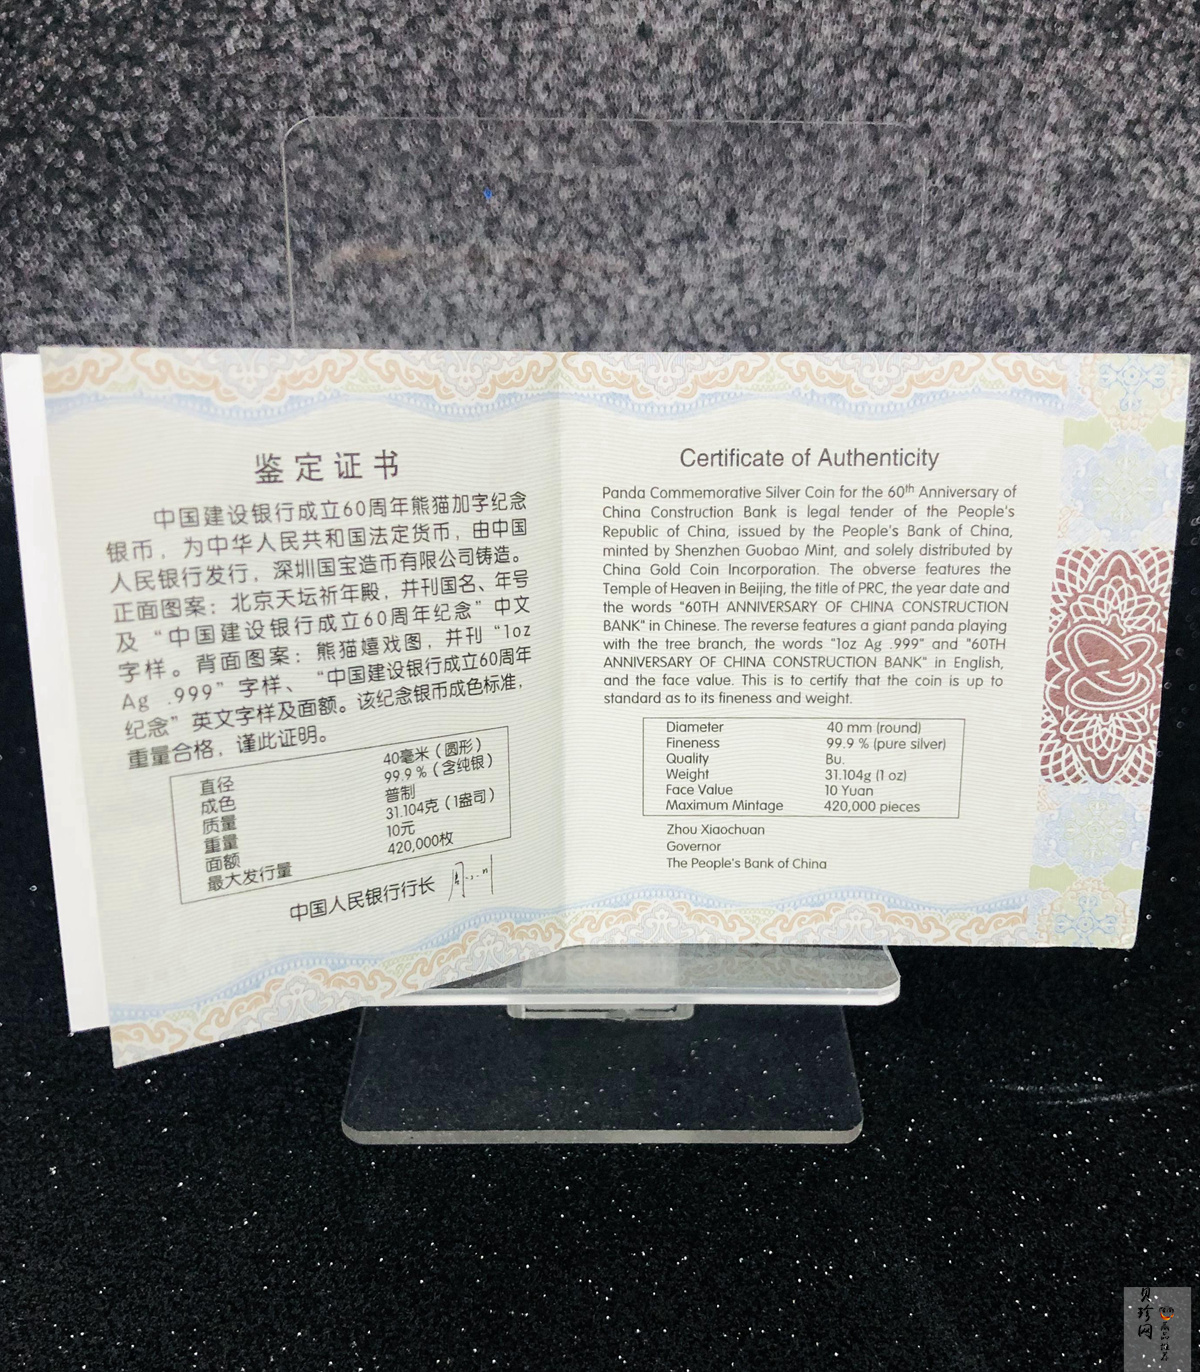 鉴定证书
中国建设银行成立60周年熊猫加字纪念
银币，为中华人民共和国法定货币，由中国
人民银行发行，深圳国宝造币有限公司铸造。
正面图案：北京天坛祈年殿，并刊国名、年号
及“中国建设银行成立60周年纪念”中文
字样。背面图案：熊猫嬉戏图，并刊“1oz
Ag .999”字样、“中国建设银行成立60周年
纪念”英文字样及面额。该纪念银币成色标准，
重量合格，谨此证明。
直径 40毫米（圆形）
成色 99.9％（含纯银）
质量 普制
重量 31.104克（1盎司）
面额 10元
最大发行量 420,000枚
中国人民银行行长
Certificate of Authenticity
Panda Commemorative Silver Coin for the 60th Anniversary of
China Construction Bank is legal tender of the People's
Republic of China, issued by the People's Bank of China,
minted by Shenzhen Guobao Mint, and solely distributed by
China Gold Coin Incorporation. The obverse features the
Temple of Heaven in Beijing, the title of PRC, the year date and
the words "60TH ANNIVERSARY OF CHINA CONSTRUCTION
BANK" in Chinese. The reverse features a giant panda playing
with the tree branch, the words "1oz Ag .999" and "60TH
ANNIVERSARY OF CHINA CONSTRUCTION BANK" in English,
and the face value. This is to certify that the coin is up to
standard as to its fineness and weight.
Diameter 40 mm (round)
Fineness 99.9 % (pure silver)
Quality Bu.
Weight 31.104g (1 oz)
Face Value 10 Yuan
Maximum Mintage 420,000 pieces
Zhou Xiaochuan
Governor
The People's Bank of China
贝珍网